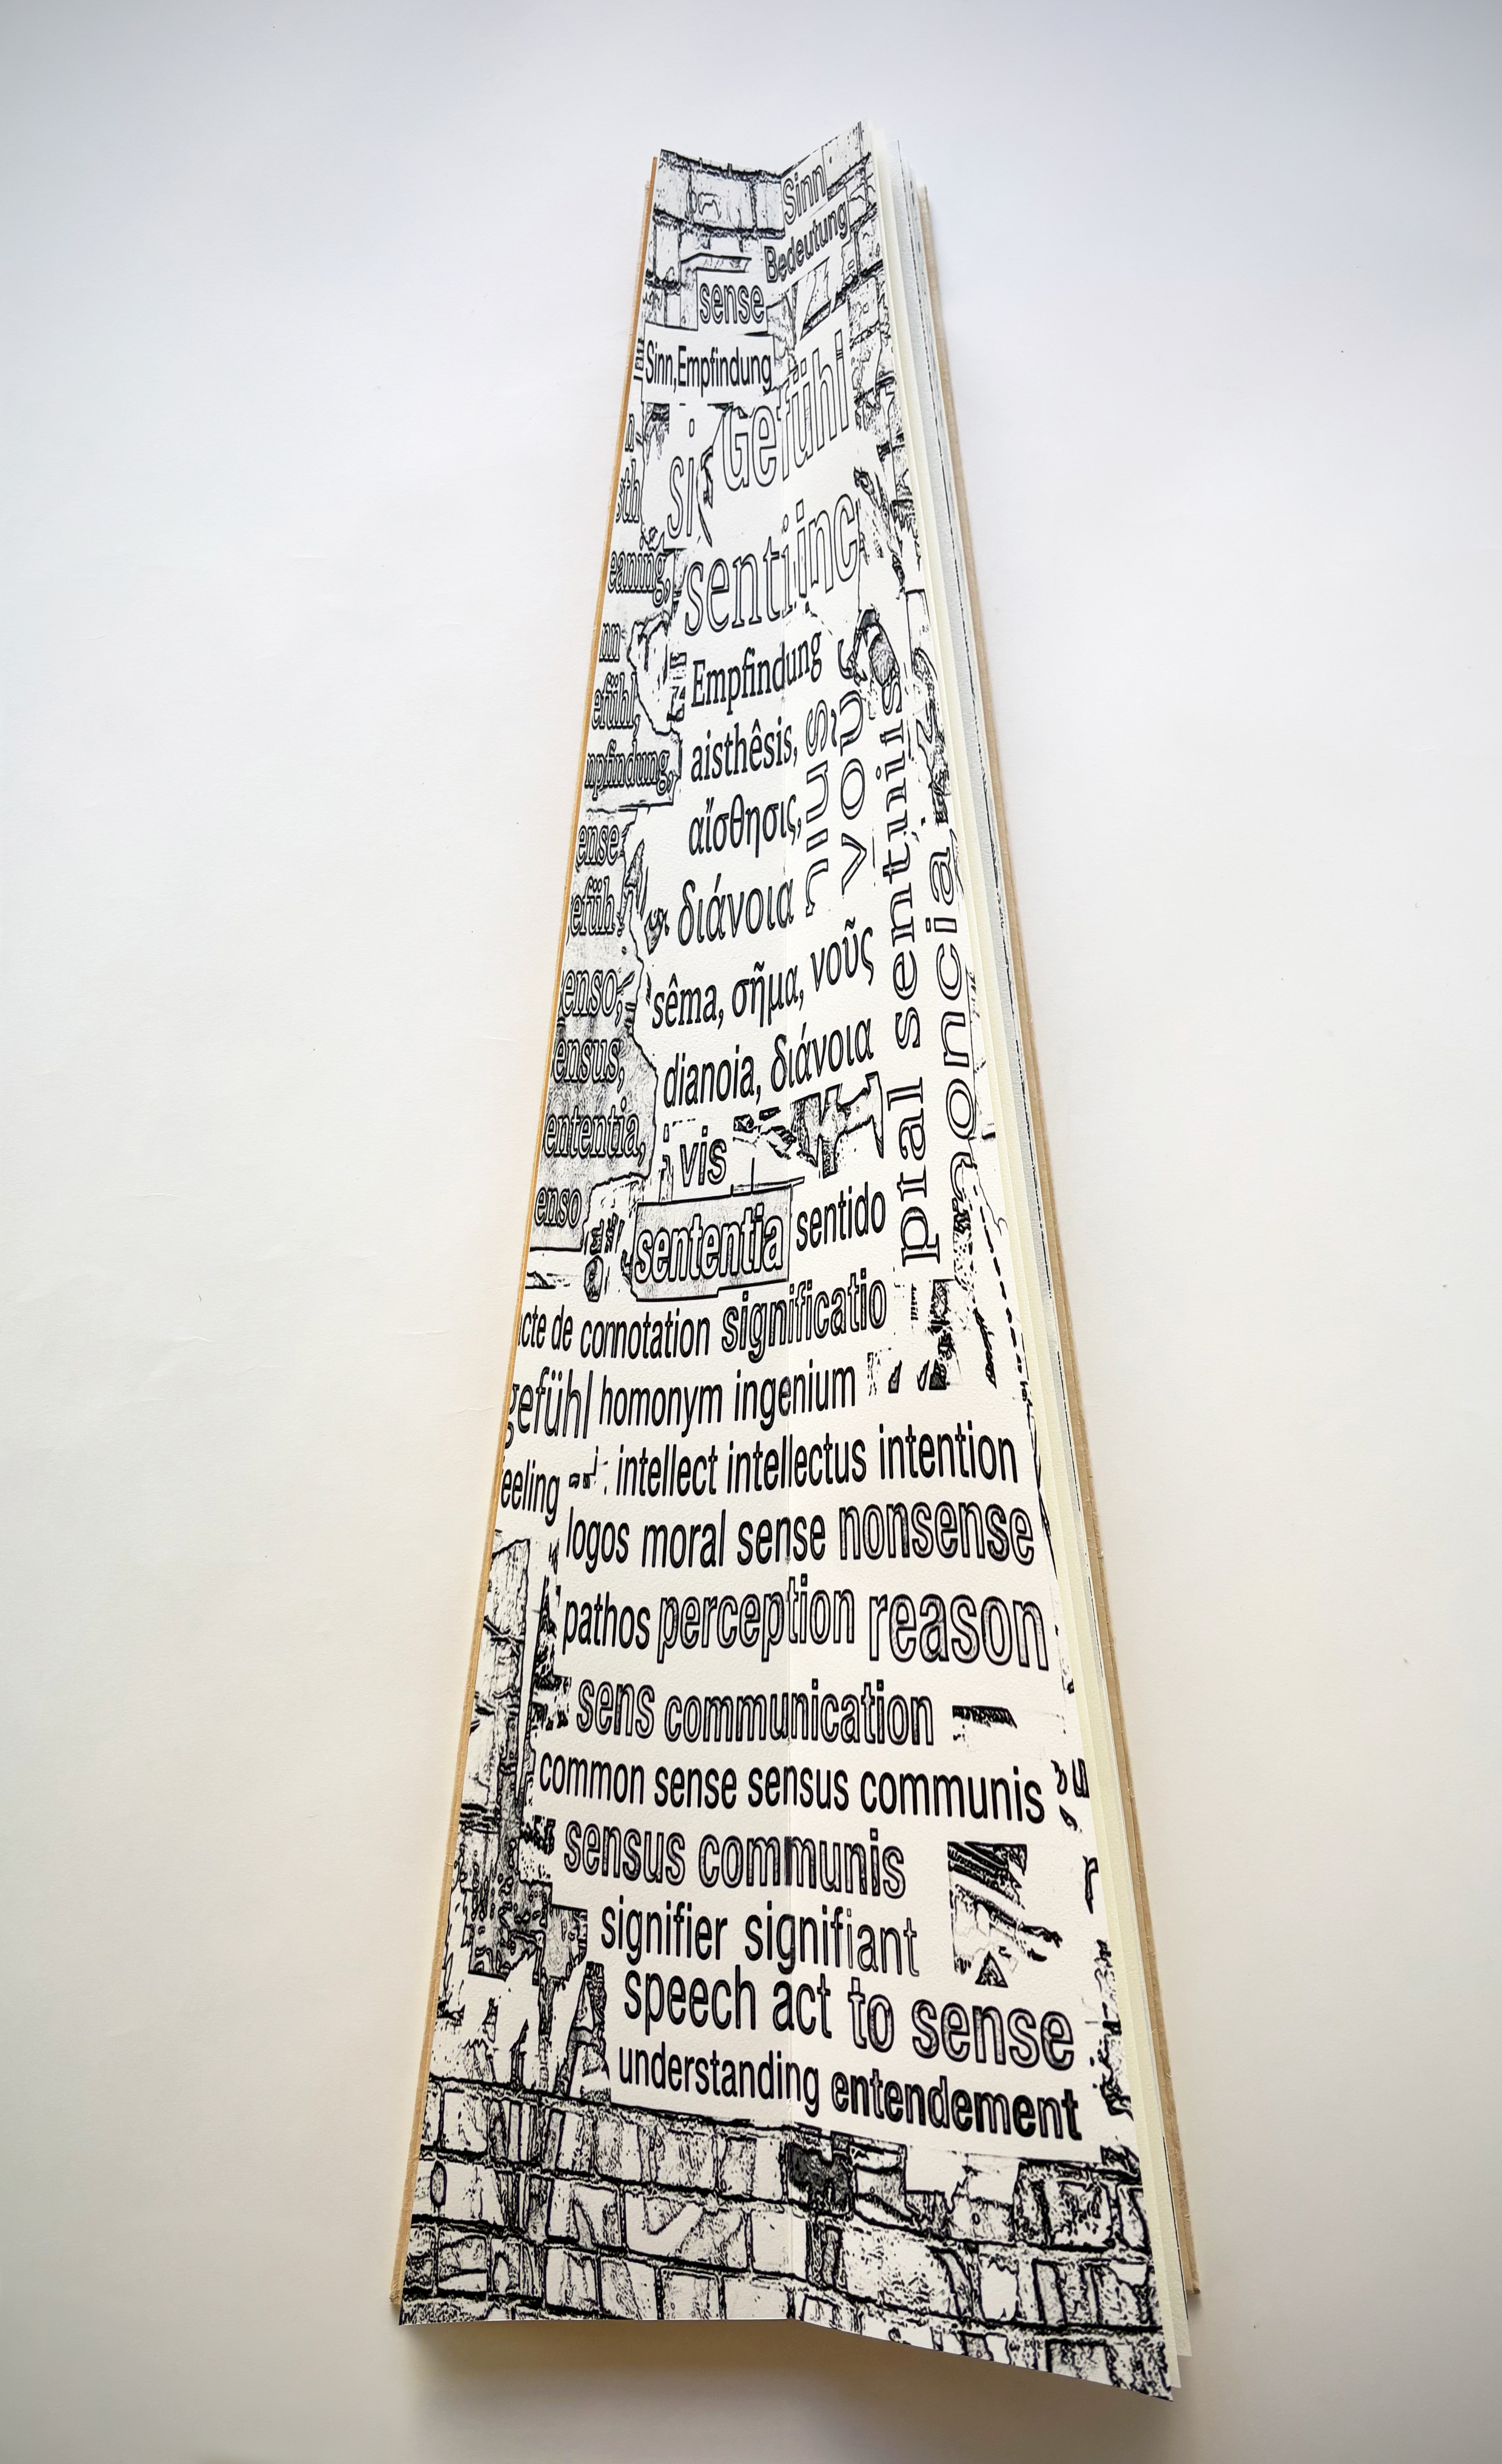 Sinn
Bedeutung
sense
Sinn,Empfindung
Gefühl
si
senti inc
eaning,
nn
efühl,
Empfindung
npfindung,
aisthêsis,
ense
αἴσθησις,
efüh
διάνοια
enso,
sêma, σῆμα, νοῦς
ensus,
dianoia, διάνοια
ententia,
vis
enso
sententia sentido
νους
pial sentiiis
noncia
acte de connotation significatio
gefühl homonym ingenium
eeling
intellect intellectus intention
logos moral sense nonsense
pathos perception reason
sens communication
common sense sensus communis
sensus communis
signifier signifiant
speech act to sense
understanding entendement